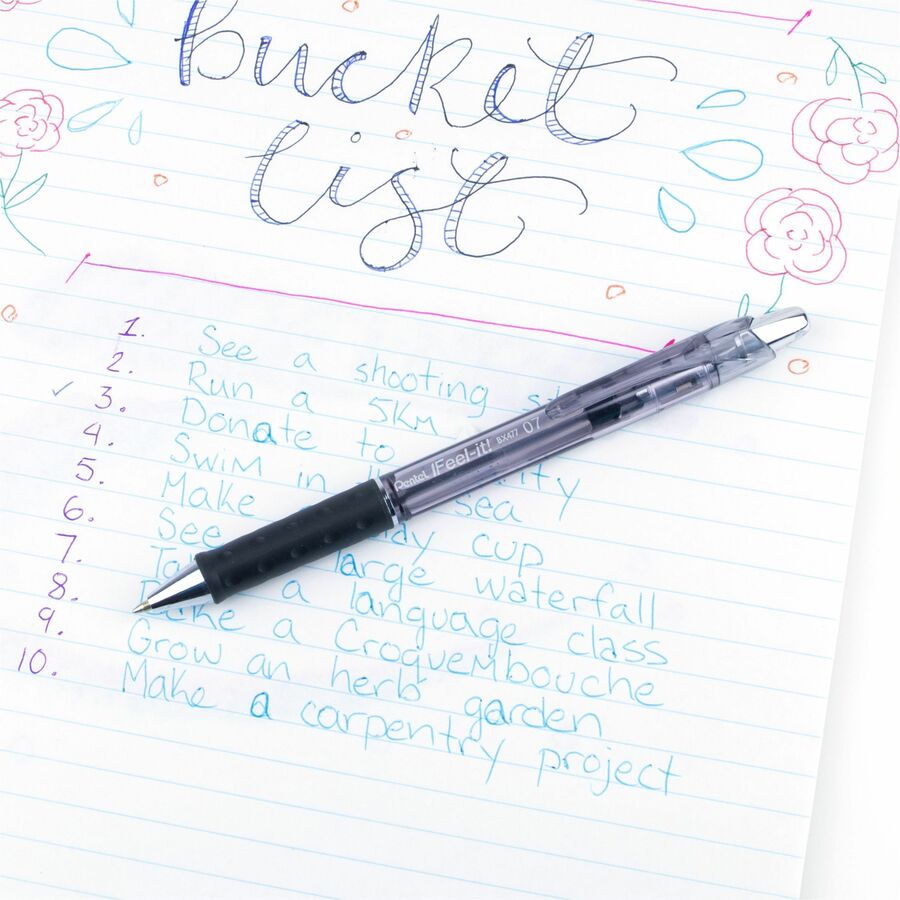 bucket
list
1. See a shooting
2. Run a 5Km
✓ 3. Donate to
4. Swim in sea
5. Make cup
6. See large waterfall
7. a language class
8. a Croquembouche
9. Grow an herb garden
10. Make a carpentry project
Pentel RFeel-it! BX477 07